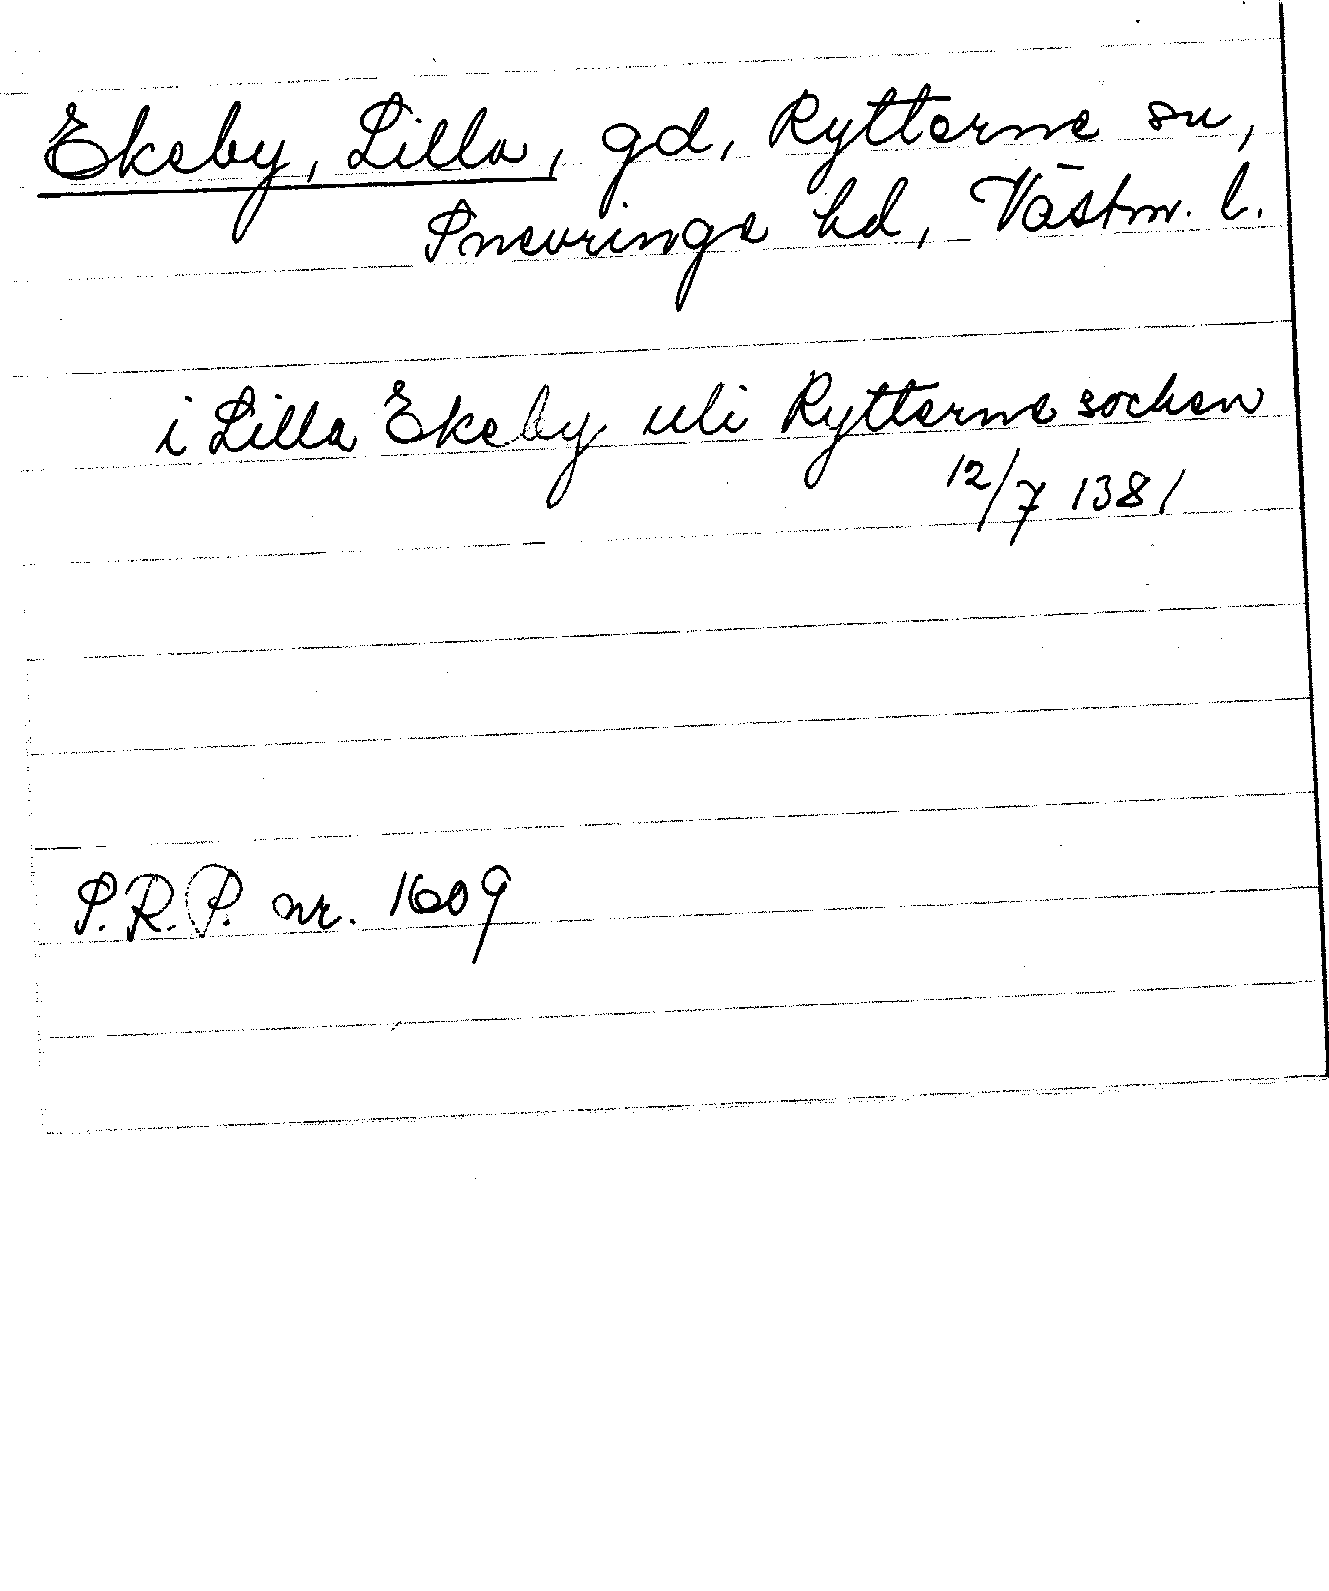 Ekeby, Lilla, gd, Rytterne sn,
Snevringe hd, Västm. l.
i Lilla Ekeby uti Rytterne socken
12/7 1381
S.R.P. nr. 1609